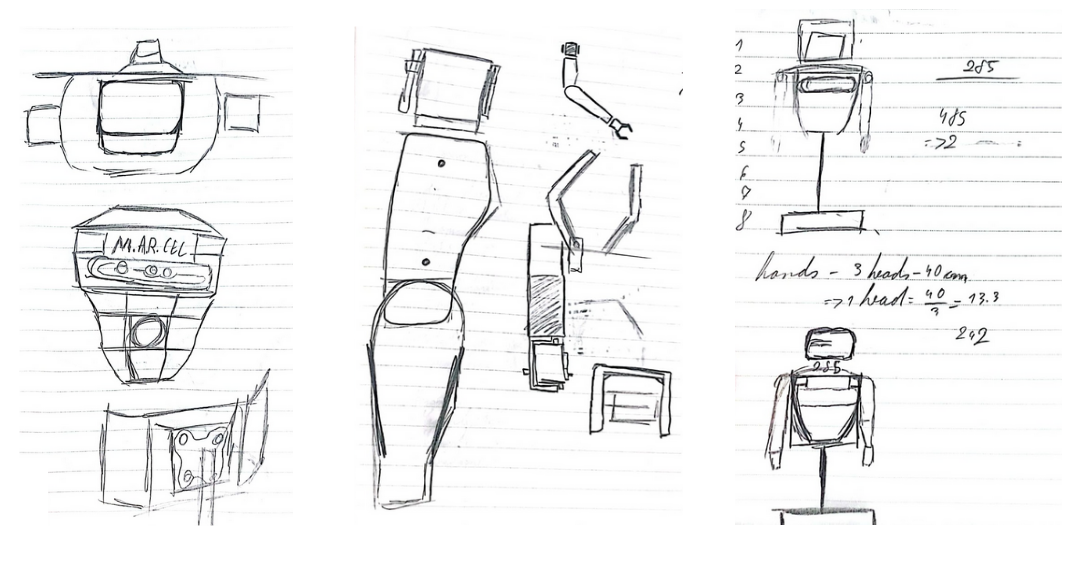 M.AR.CEL
1
2
3
4
5
6
7
8
285
485
=>2
hands - 3 heads - 40 cm
=> 1 head = 40/3 = 13.3
242
285